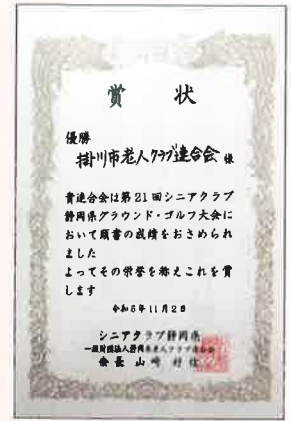 賞状
優勝
掛川市老人クラブ連合会 様
貴連合会は第21回シニアクラブ
静岡県グラウンド・ゴルフ大会に
おいて頭書の成績をおさめられ
ました
よってその栄誉を称えこれを賞
します
令和5年11月2日
シニアクラブ静岡県
一般財団法人静岡県老人クラブ連合会
会長 山崎